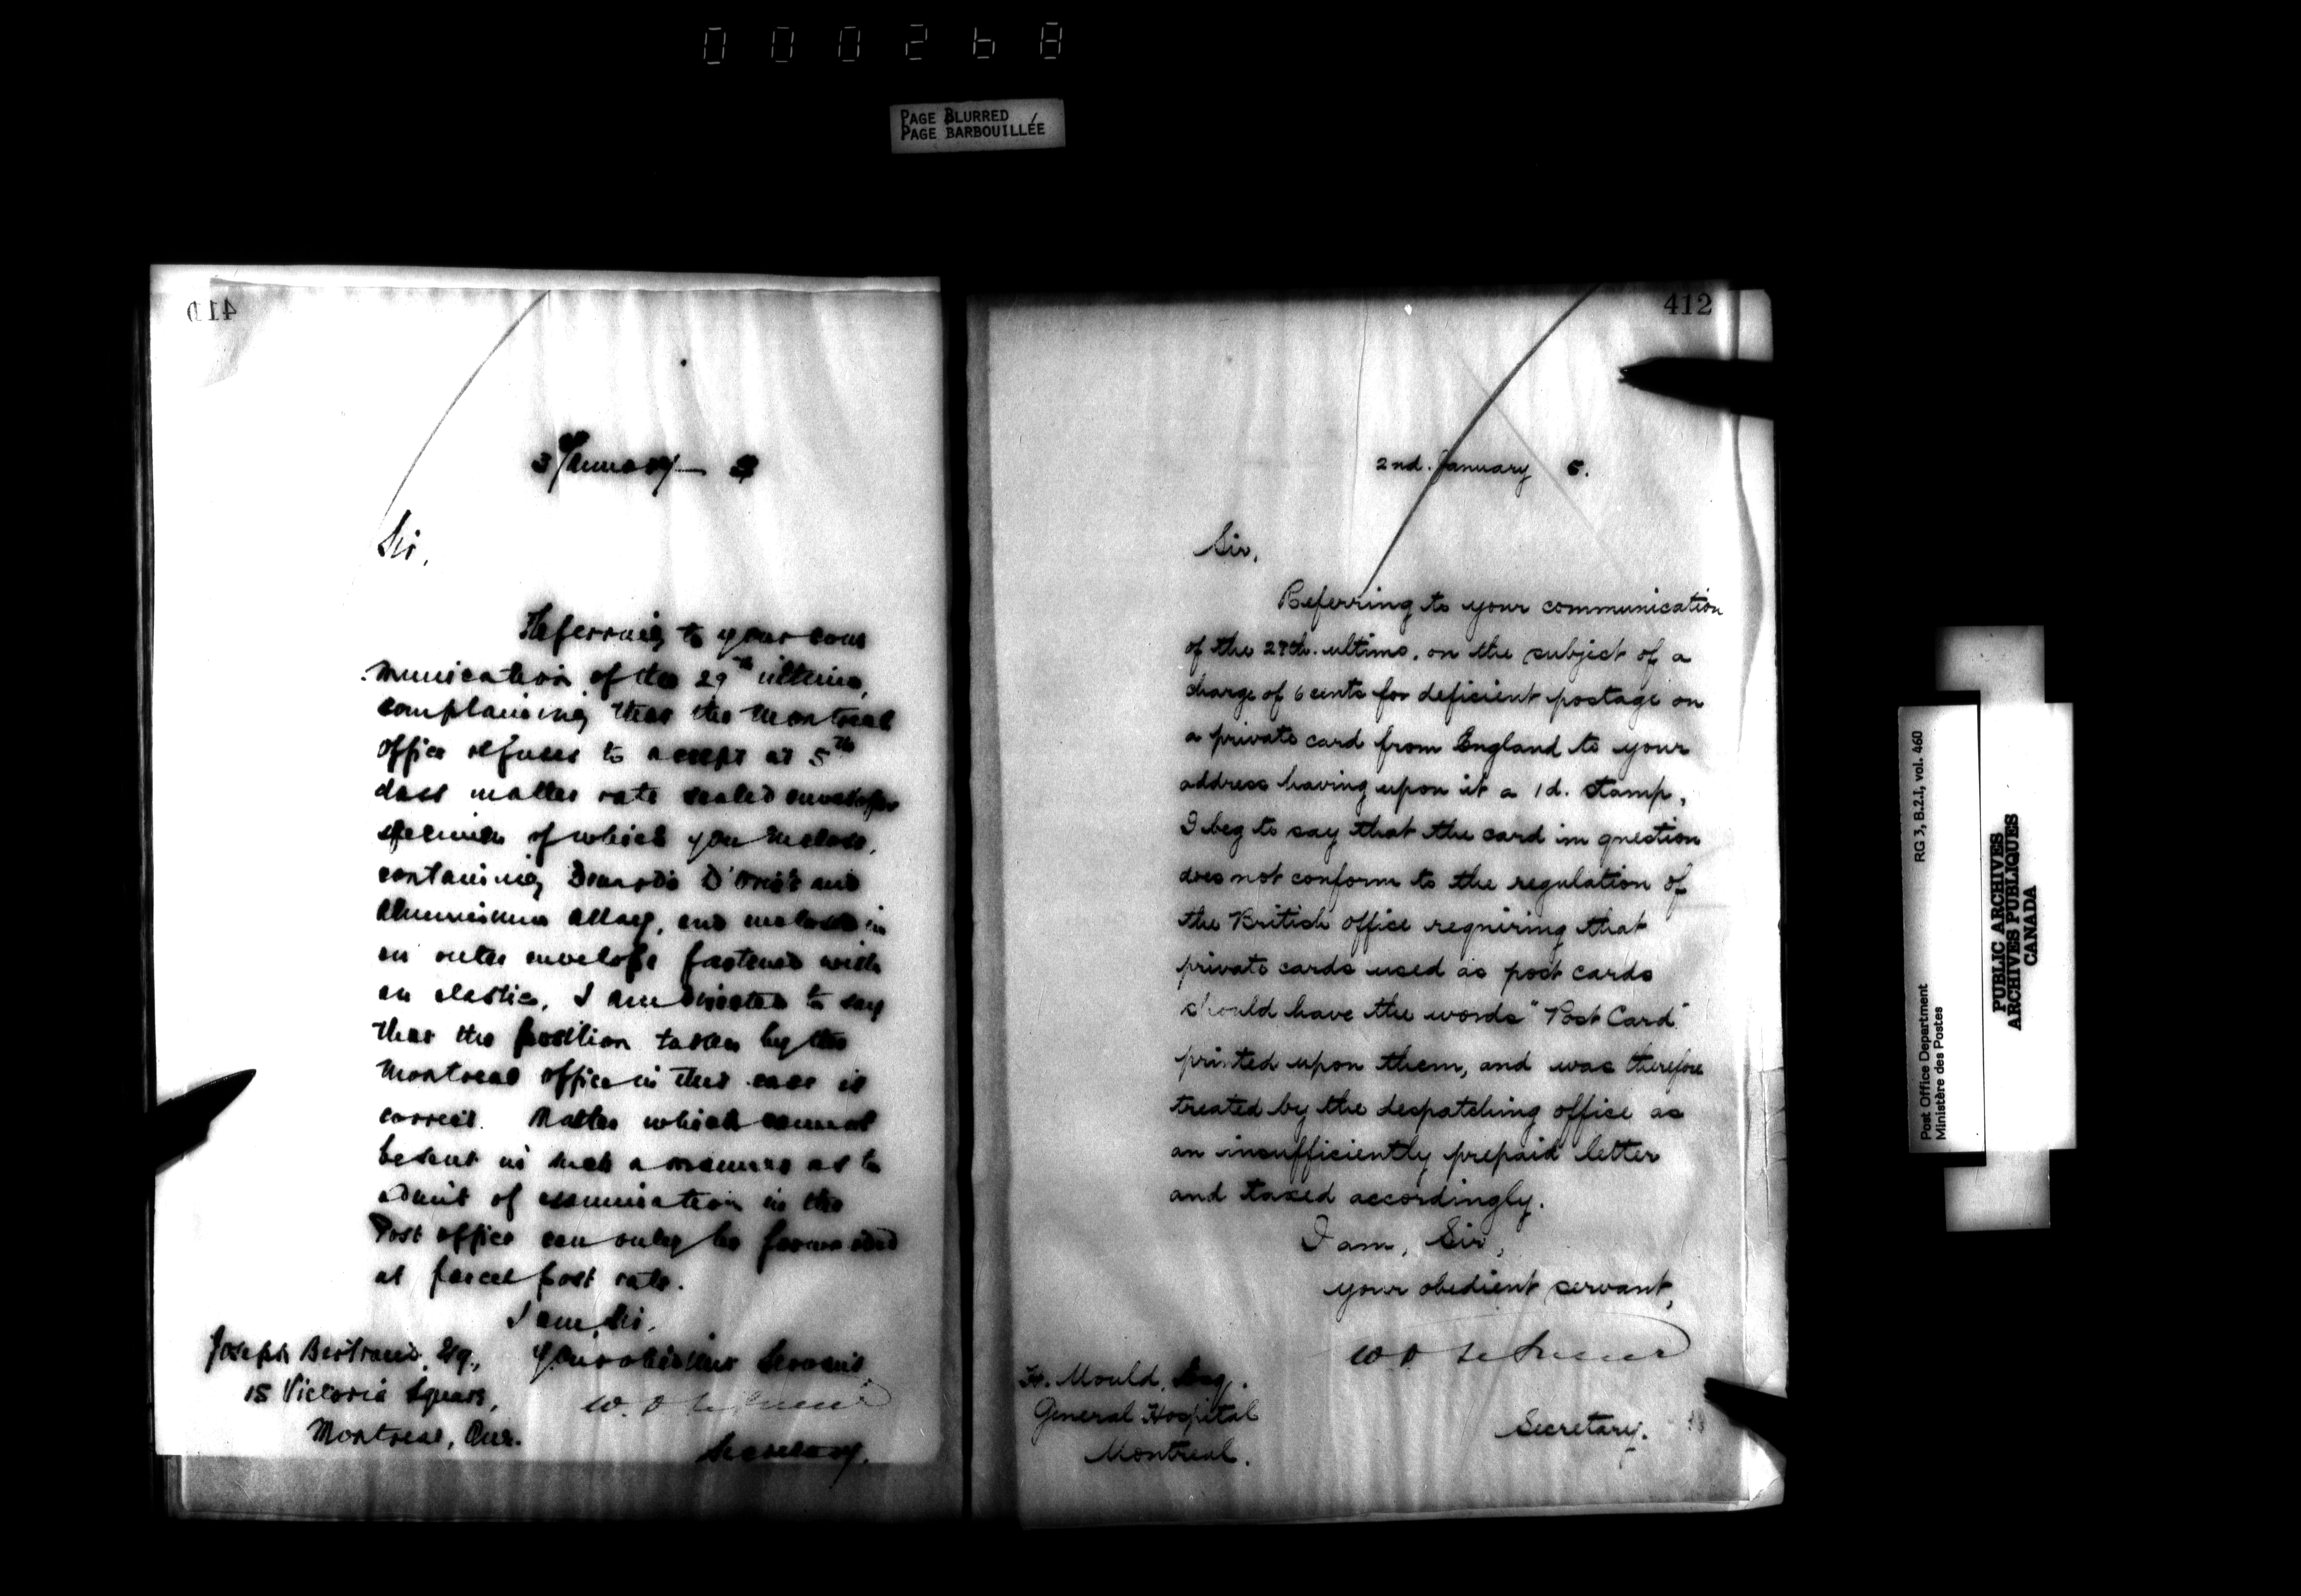 000268
PAGE BLURRED
PAGE BARBOUILLÉE
411
3 January
Sir,
Referring to your com
munication of the 29th ultimo,
complaining that the Montreal
office refuses to accept at 5th
class matter rate sealed envelopes
specimen of which you inclose,
containing and
Aluminium Alloy, and inclosed in
an outer envelope fastened with
an elastic, I am directed to say
that the position taken by the
Montreal office in this case is
correct. Matter which cannot
be sent in such a manner as to
admit of examination in the
Post office can only be forwarded
at parcel post rate.
I am, Sir,
Your obedient Servant
Joseph Bertrand, Esq.,
15 Victoria Square,
Montreal, Que.
Secretary.
412
2nd. January 5.
Sir,
Referring to your communication
of the ultimo, on the subject of a
charge of 6 cents for deficient postage on
a private card from England to your
address having upon it a 1d. stamp,
I beg to say that the card in question
does not conform to the regulation of
the British office requiring that
private cards used as post cards
should have the words "Post Card"
printed upon them, and was therefore
treated by the despatching office as
an insufficiently prepaid letter
and taxed accordingly.
I am, Sir,
your obedient servant,
Secretary.
H. Mould, Esq.
General Hospital
Montreal.
Post Office Department RG 3, B.2.I, vol. 460
Ministère des Postes
PUBLIC ARCHIVES
ARCHIVES PUBLIQUES
CANADA